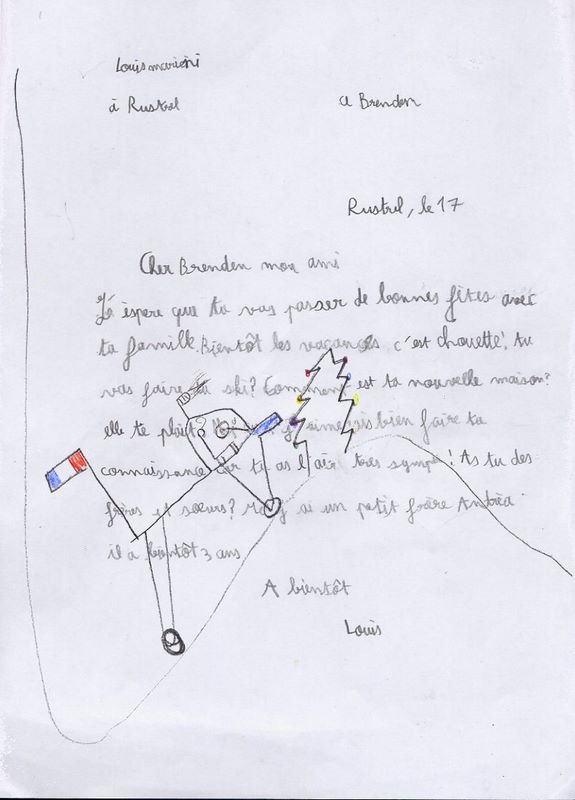 Louis marieni
à Rustrel
a Brenden
Rustrel, le 17
Cher Brenden mon ami
J'éspere que tu vas passer de bonnes fêtes avec
ta famille. Bientôt les vacances c'est chouette! tu
vas faire du ski? Comment est ta nouvelle maison?
elle te plaît j'aimerais bien faire ta
connaissance car tu as l'air très sympa! As tu des
frères et sœurs? Moi j'ai un petit frère Andréa
il a bientôt 3 ans
A bientôt
Louis